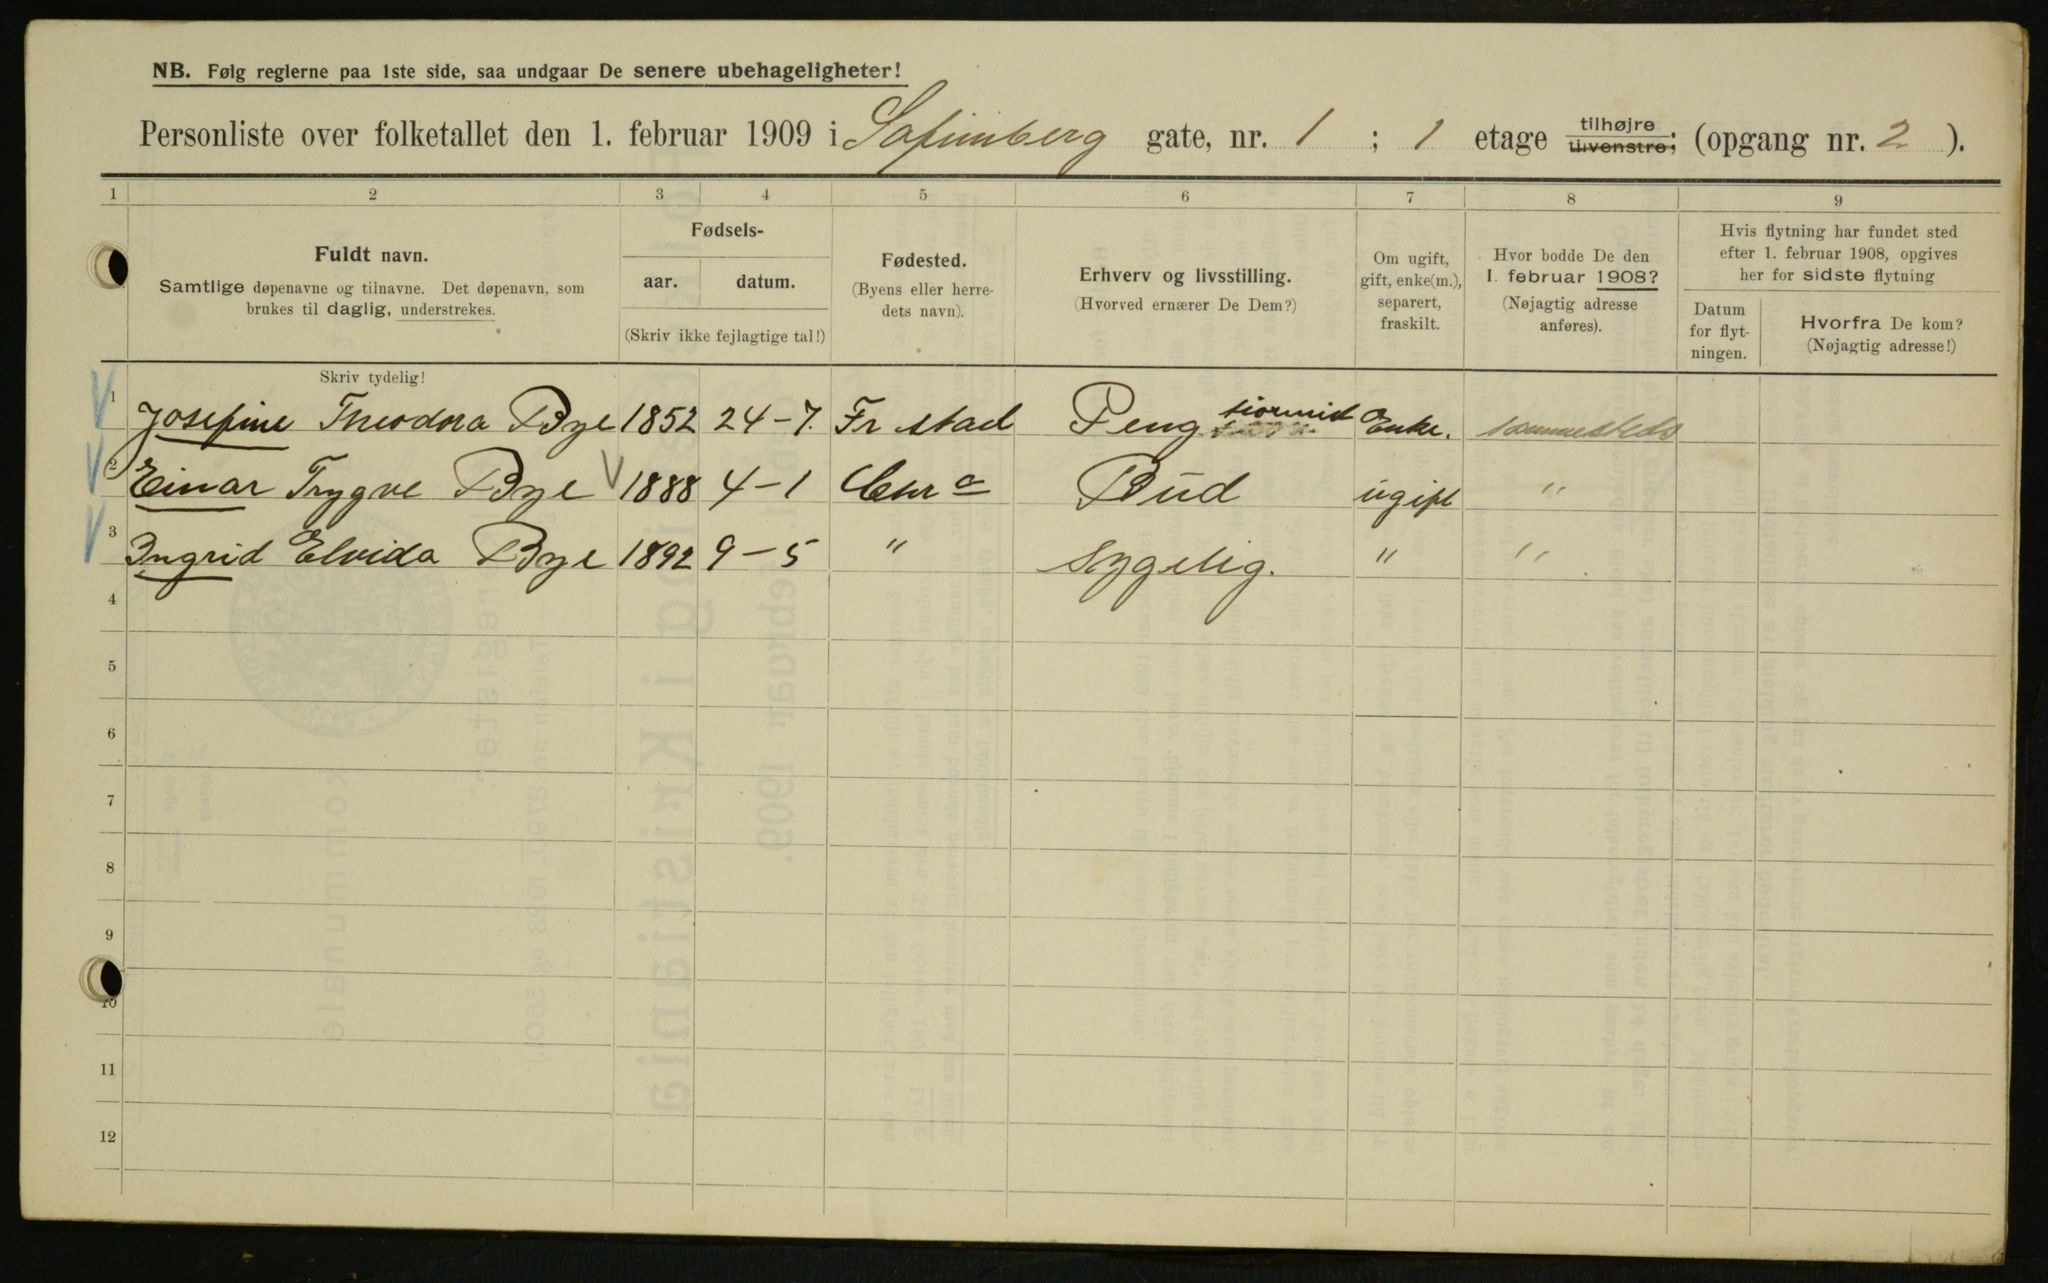 NB. Følg reglerne paa 1ste side, saa undgaar De senere ubehageligheter!
Personliste over folketallet den 1. februar 1909 i Sofienberg gate, nr. 1 ; 1 etage tilhøjre tilvenstre; (opgang nr. 2 ).
1 2 3 4 5 6 7 8 9
Fuldt navn.
Samtlige døpenavne og tilnavne. Det døpenavn, som
brukes til daglig, understrekes.
Fødsels-
aar. datum.
(Skriv ikke fejlagtige tal!)
Fødested.
(Byens eller herre-
dets navn).
Erhverv og livsstilling.
(Hvorved ernærer De Dem?)
Om ugift,
gift, enke(m.),
separert,
fraskilt.
Hvor bodde De den
1. februar 1908?
(Nøjagtig adresse
anføres).
Hvis flytning har fundet sted
efter 1. februar 1908, opgives
her for sidste flytning
Datum
for flyt-
ningen.
Hvorfra De kom?
(Nøjagtig adresse!)
Skriv tydelig!
1 Josefine Theodora Bye 1852 24-7. Fr stad Peng Enke. sammesteds
2 Einar Trygve Bye 1888 4-1 Chr a Bud ugift "
3 Ingrid Elvida Bye 1892 9-5 " sygelig. " "
4
5
6
7
8
9
10
11
12